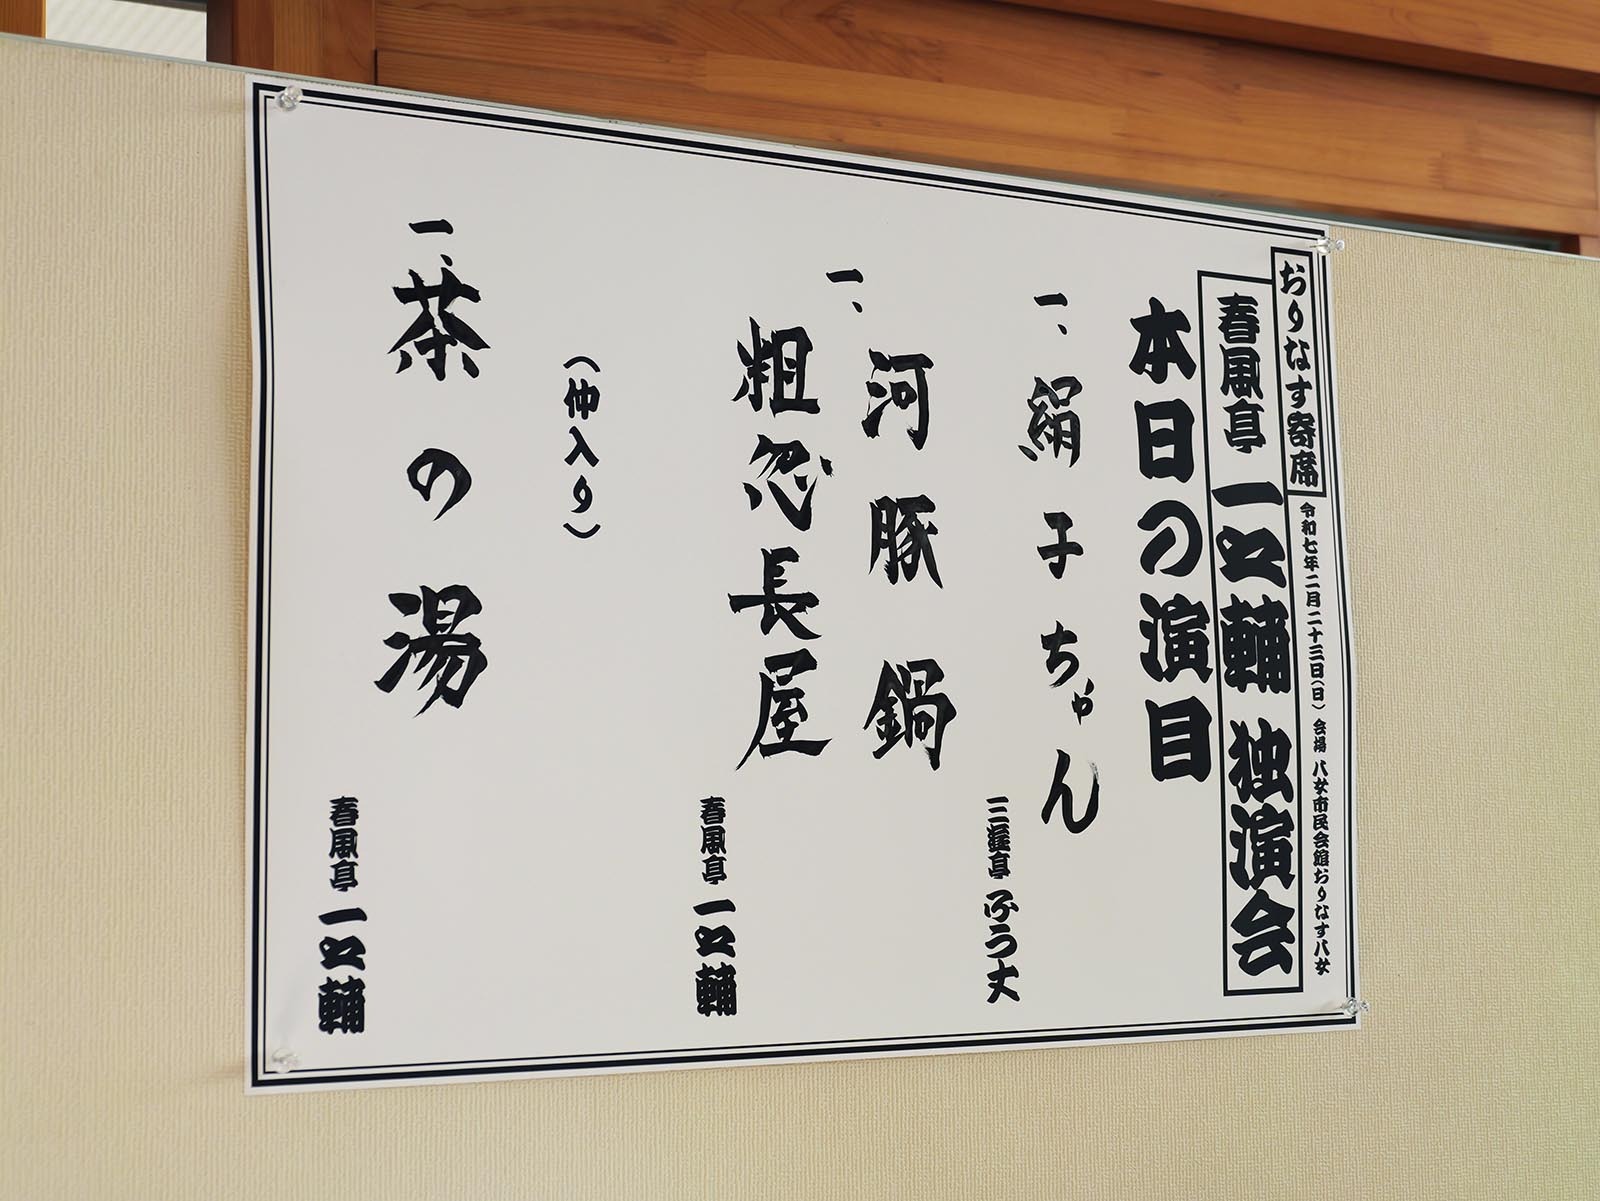 おりなす寄席 令和七年二月二十三日(日) 会場 八女市民会館おりなす八女
春風亭 一之輔 独演会
本日の演目
一、絹子ちゃん
三遊亭 ふう丈
一、河豚鍋
粗忽長屋
春風亭 一之輔
(仲入り)
一、茶の湯
春風亭 一之輔